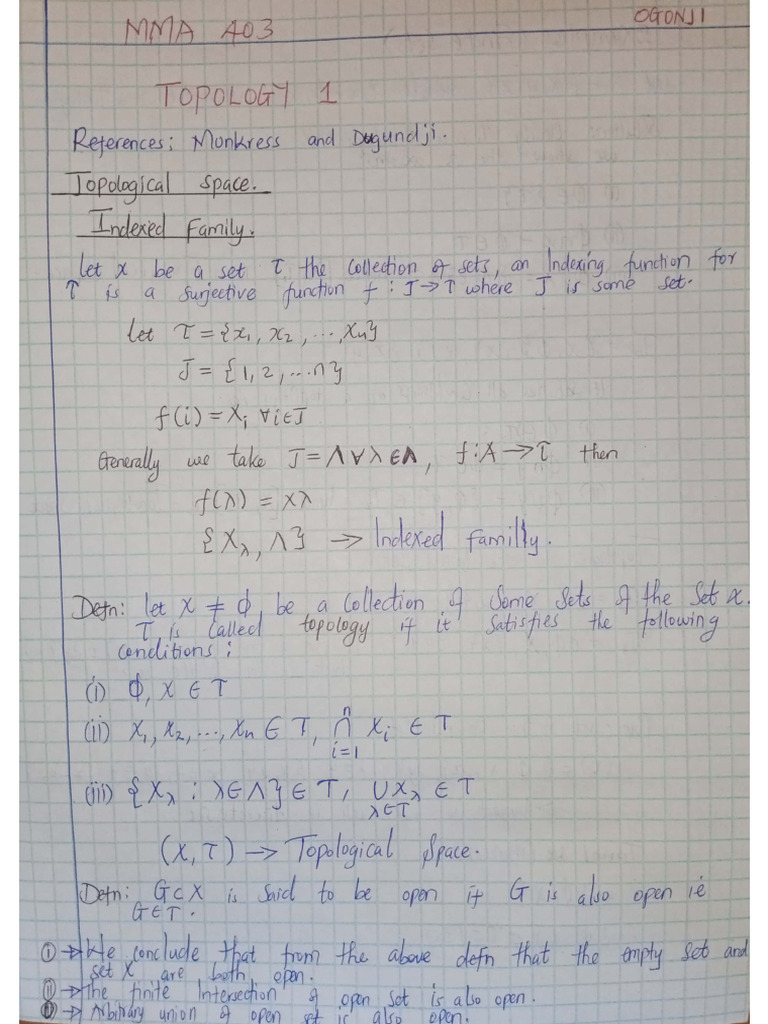 MMA 403
OGONJI
TOPOLOGY 1
References: Monkress and Dugundji.
Topological Space.
Indexed Family.
let x be a set τ the collection of sets, an Indexing function for
τ is a surjective function f : J→τ where J is some set.
let τ = {x₁, x₂, ..., xₙ}
J = {1, 2, ... n}
f(i) = Xᵢ ∀i∈J
Generally we take J = Λ ∀ λ ∈ Λ, f: Λ → τ then
f(λ) = xλ
{X_λ, Λ} → Indexed familly.
Defn: let X ≠ ϕ, be a collection of some sets of the set x.
τ is called topology if it satisfies the following
conditions:
(i) ϕ, X ∈ τ
(ii) X₁, X₂, ..., Xₙ ∈ τ, ⋂ᵢ₌₁ⁿ Xᵢ ∈ τ
(iii) {X_λ : λ∈Λ} ∈ τ, ∪X_λ ∈ τ
λ∈τ
(X, τ) → Topological Space.
Defn: G⊂X is said to be open if G is also open i.e
G∈τ.
① → We conclude that from the above defn that the empty set and
set X are both open.
② → The finite Intersection of open set is also open.
→ Arbitrary union of open set is also open.